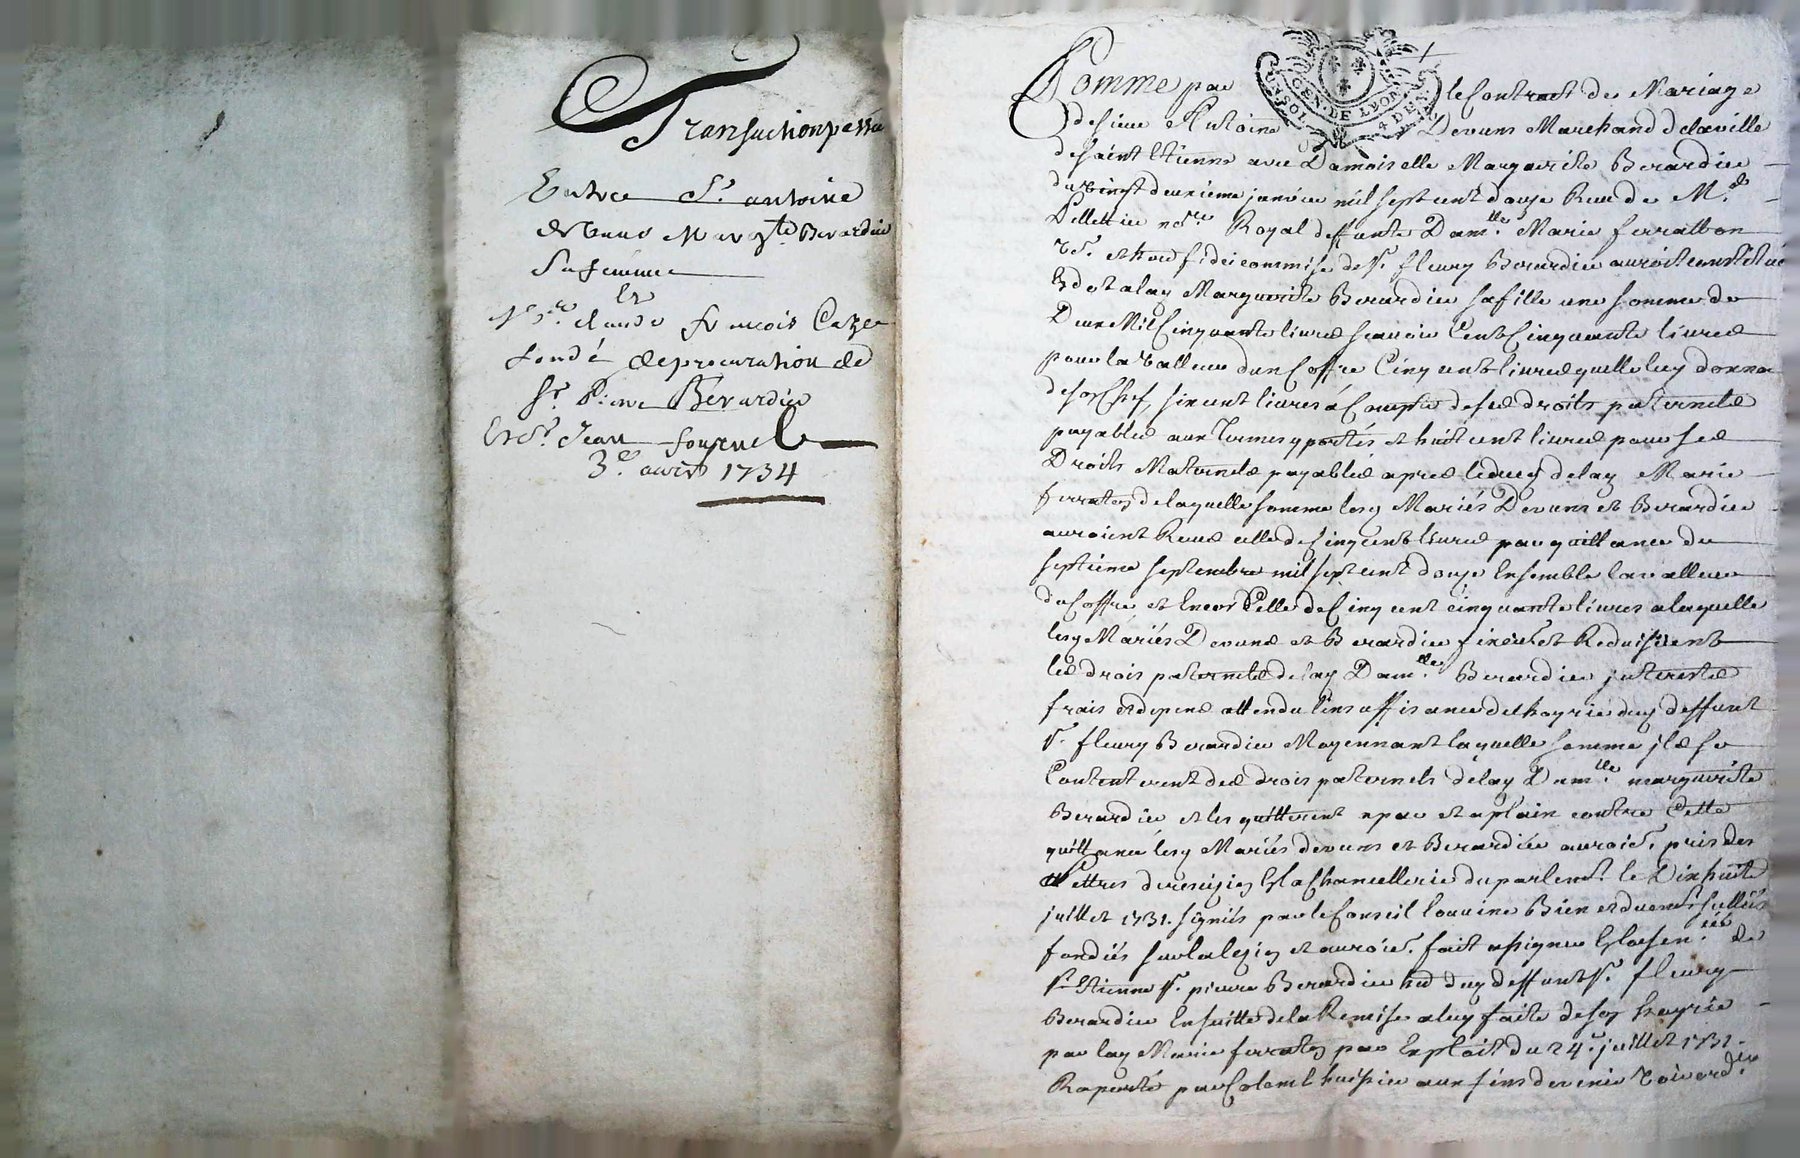 Transaction passée
Entre Sr. antoine
devuns Margte Berardier
Sa femme
Et
Claude françois Caze
fondé de procuration de
Sr. Pierre Bérardier
Et Sr. Jean fournel
3e. avril 1734
UN SOL GEN. DE LYON 4 DEN.
Comme par le Contract de Mariage
de sieur Antoine Devuns Marchand de la ville
de saint Etienne avec Damoiselle Marguerite Berardier
du vingt deuxieme janvier mil sept cent douze Receu de Me
Pelletier nore Royal deffunte Damlle Marie ferratton
ve. et hered fideicommise de Sr. fleury Berardier auroit constitué
En dot a lad Marguerite Berardier sa fille une somme de
Deux Mil Cinquante livres scavoir Cent Cinquante livres
pour la valleur d'un Coffre Cinq cent livres quelle luy donna
de son Chef, six cent livres a Compte de ses droits paternels
payables aux termes y portés et huit cent livres pour ses
Droits Maternels payables apres le deces de lad Marie
ferraton de laquelle somme lesd Mariés Devuns et Berardier
auroient Receus celle de Cinq cent livres par quittance du
septieme septembre mil sept cent douze Ensemble la valleur
du Coffre et Encor Celle de Cinq cent cinquante livres a laquelle
lesd Mariés Devuns et Berardier et Reduisirent
les drois paternels de lad Damlle Berardier interests
frais et depens attendu l'insuffisance de l'hoyrie dud deffunt
Sr. fleury Berardier Moyennant laquelle somme ils se
Contenterent des drois paternels de lad Damlle marguerite
Berardier et les quitterent a pur et a plain contre Cette
quittance lesd Mariés devuns et Berardier auroit. pris des
Lettres de rescizion En la Chancellerie du parlemt. le Dix huit
juillet 1731. signés par le Conseil Bien et duemt. scellés
fondées sur la lezion et auroit. fait assigner En la senée de
St. Etienne Sr. pierre Berardier hed dud deffunt Sr. fleury
Berardier En suitte de la Remise a luy faite de son hoyrie
par lad Marie ferraton par Exploit du 24e. juillet 1731.
Raporté par huissier aux fins de venir voir